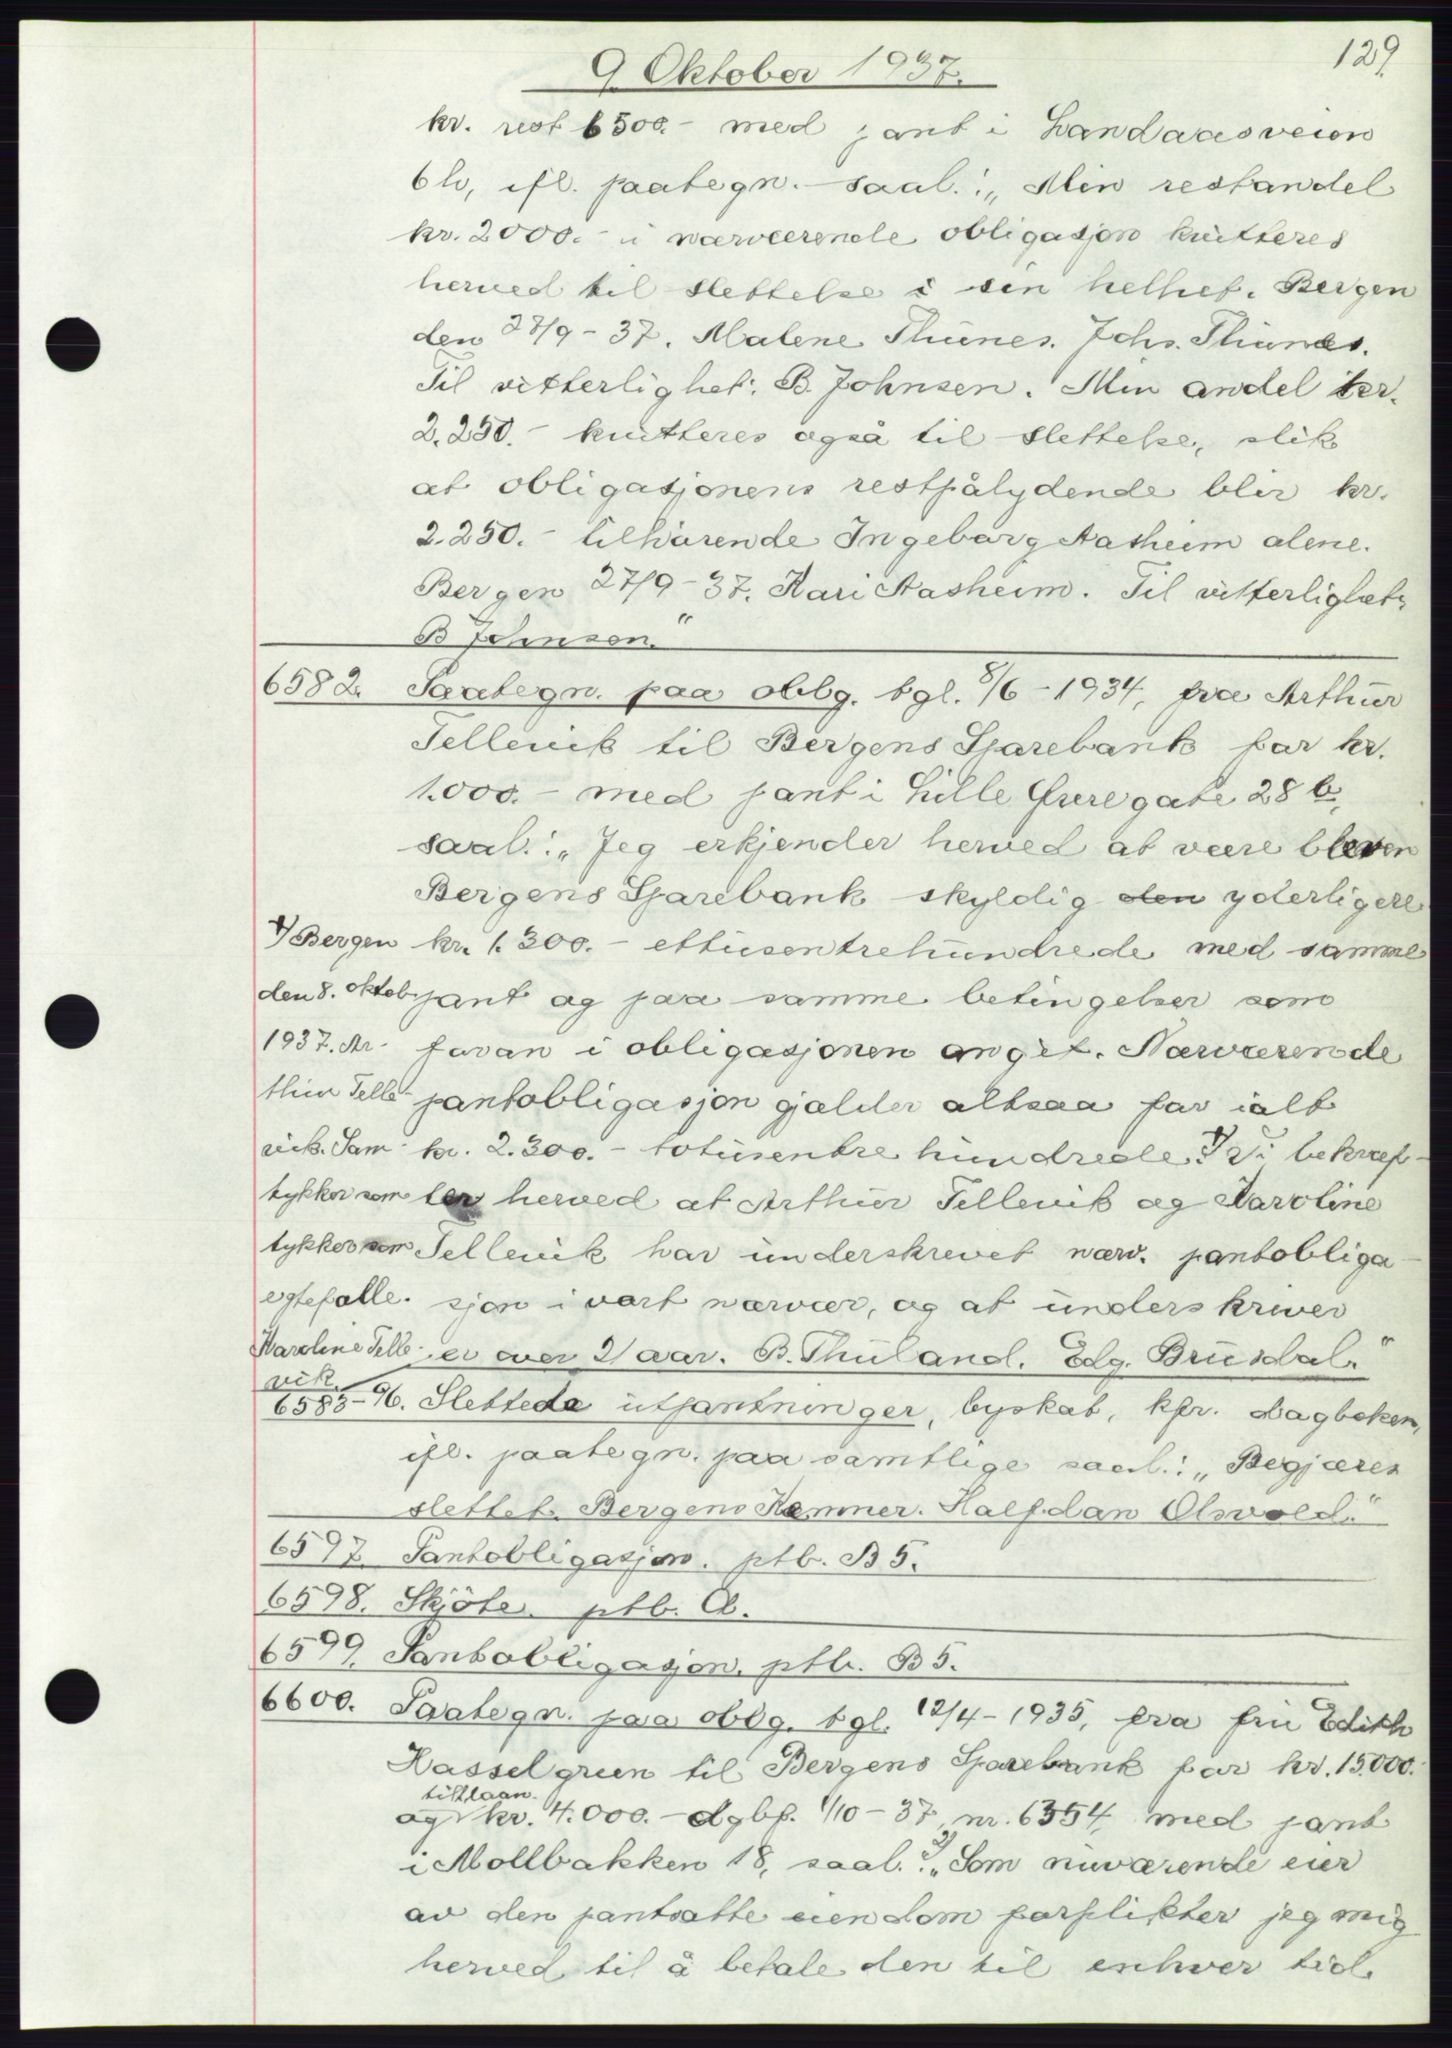 129.
9. Oktober 1937.
kr. rest 6500.- med pant i Landaasveien
6b, ifl. paategn. saal.: „Min restandel
kr. 2000.- i nærværende obligasjon kvitteres
herved til slettelse i sin helhet. Bergen
den 27/9-37. Malene Thunes. Johs. Thunes.
Til vitterlighet: B. Johnsen. Min andel kr.
2.250.- kvitteres også til slettelse, slik
at obligasjonens restpålydende blir kr.
2.250.- tilhørende Ingeborg Aasheim alene.
Bergen 27/9-37. Kari Aasheim. Til vitterlighet:
B Johnsen."
6582. Paategn. paa oblg. tgl. 8/6-1934, fra Arthur
Tellevik til Bergens Sparebank for kr.
1.000.- med pant i Lille Øvregate 28 b,
saal.: „Jeg erkjender herved at være bleven
Bergens Sparebank skyldig den yderligere
kr. 1.300.- ettusentrehundrede med samme
pant og paa samme betingelser som
foran i obligasjonen anget. Nærværende
pantobligasjon gjælder altsaa for ialt
kr. 2.300.- totusentrehundrede. Vi bekræf-
ter herved at Arthur Tellevik og Karoline
Tellevik har underskrevet nærv. pantobliga-
sjon i vort nærvær, og at underskriver
er over 21 aar. B. Thuland. Edg. Brusdal."
Bergen
den 8. oktob.
1937. Ar-
thur Telle-
vik. Sam-
tykker som
tykker som
egtefælle.
Karoline Telle-
vik.
6583-96. Slettede utpantninger, byskat, kfr. dagboken,
ifl. paategn. paa samtlige saal.: „Begjæres
slettet. Bergens Kemner. Halfdan Olsvold."
6597. Pantobligasjon. ptb. B 5.
6598. Skjöte. ptb. A.
6599. Pantobligasjon. ptb. B 5.
6600. Paategn. paa oblg. tgl. 12/4-1935, fra fru Edith
Hasselgreen til Bergens Sparebank for kr. 15.000.-
tillklaan.
og kr. 4.000.- dgbf. 1/10-37, nr. 6354, med pant
i Mollbakken 18, saal.: „Som nuværende eier
av den pantsatte eiendom forplikter jeg mig
herved til å betale den til enhver tid